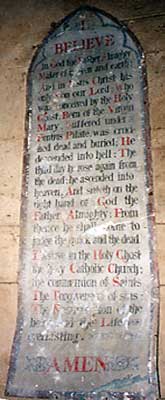 I
BELIEVE
In God the Father Almighty
Maker of heaven and earth:
And in Jesus Christ his
only son our Lord Who
was conceived by the Holy
Ghost, Born of the Virgin
Mary Suffered under
Pontius Pilate, was cruci
dead and buried: He
descended into hell: The
third day he rose again from
the dead: he ascended into
heaven, And sitteth on the
right hand of God the
Father Almighty: From
thence he shall come to
judge the quick and the dead
I believe in the Holy Ghost
the holy Catholic Church;
the communion of Saints
The Forgiveness of sins:
The Resurrection of the
body and the Life
everlasting.
AMEN